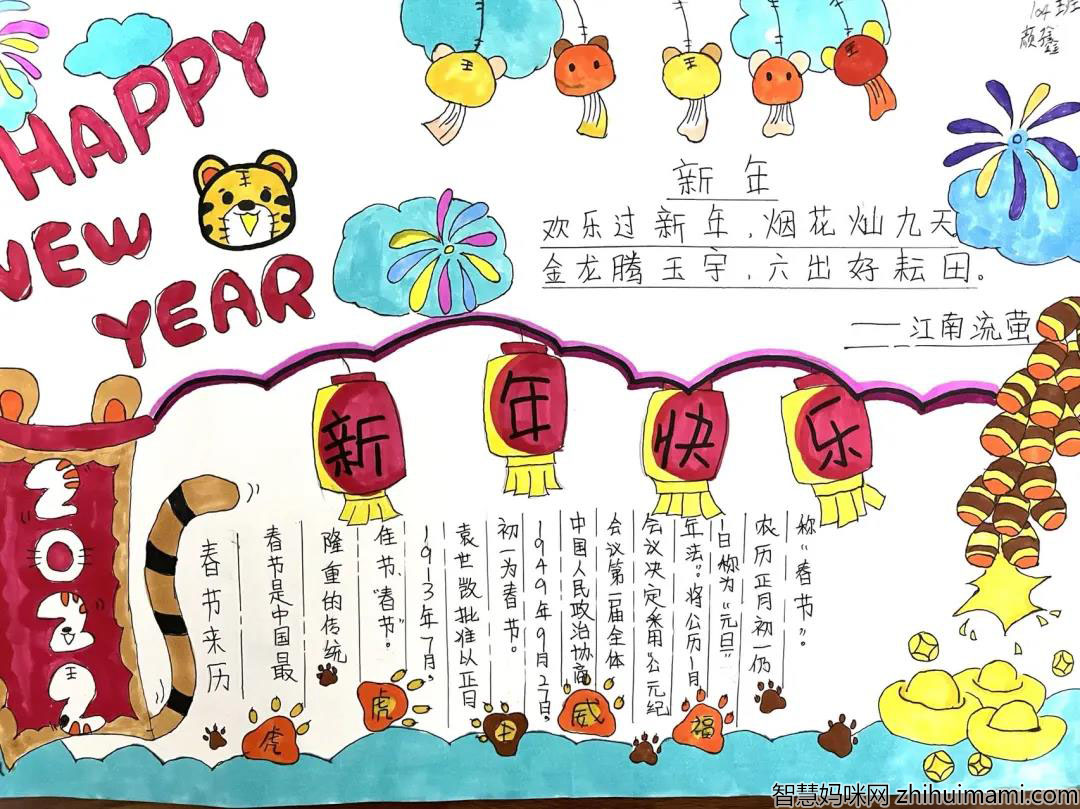 HAPPY
NEW
YEAR
104班
颜鑫
新年
欢乐过新年,烟花灿九天
金龙腾玉宇,六出好耘田。
——江南流萤
新年快乐
2022
春节来历
春节是中国最
隆重的传统
佳节、“春节”。
1913年7月,
袁世敳批准以正月
初一为春节。
1949年9月27日。
中国人民政治协商
会议第一届全体
会议决定采用公元纪
年法”。将公历1月
1日称为“元旦”
农历正月初一仍
称“春节”。
虎
虎
生
威
福
智慧妈咪网 zhihuimami.com